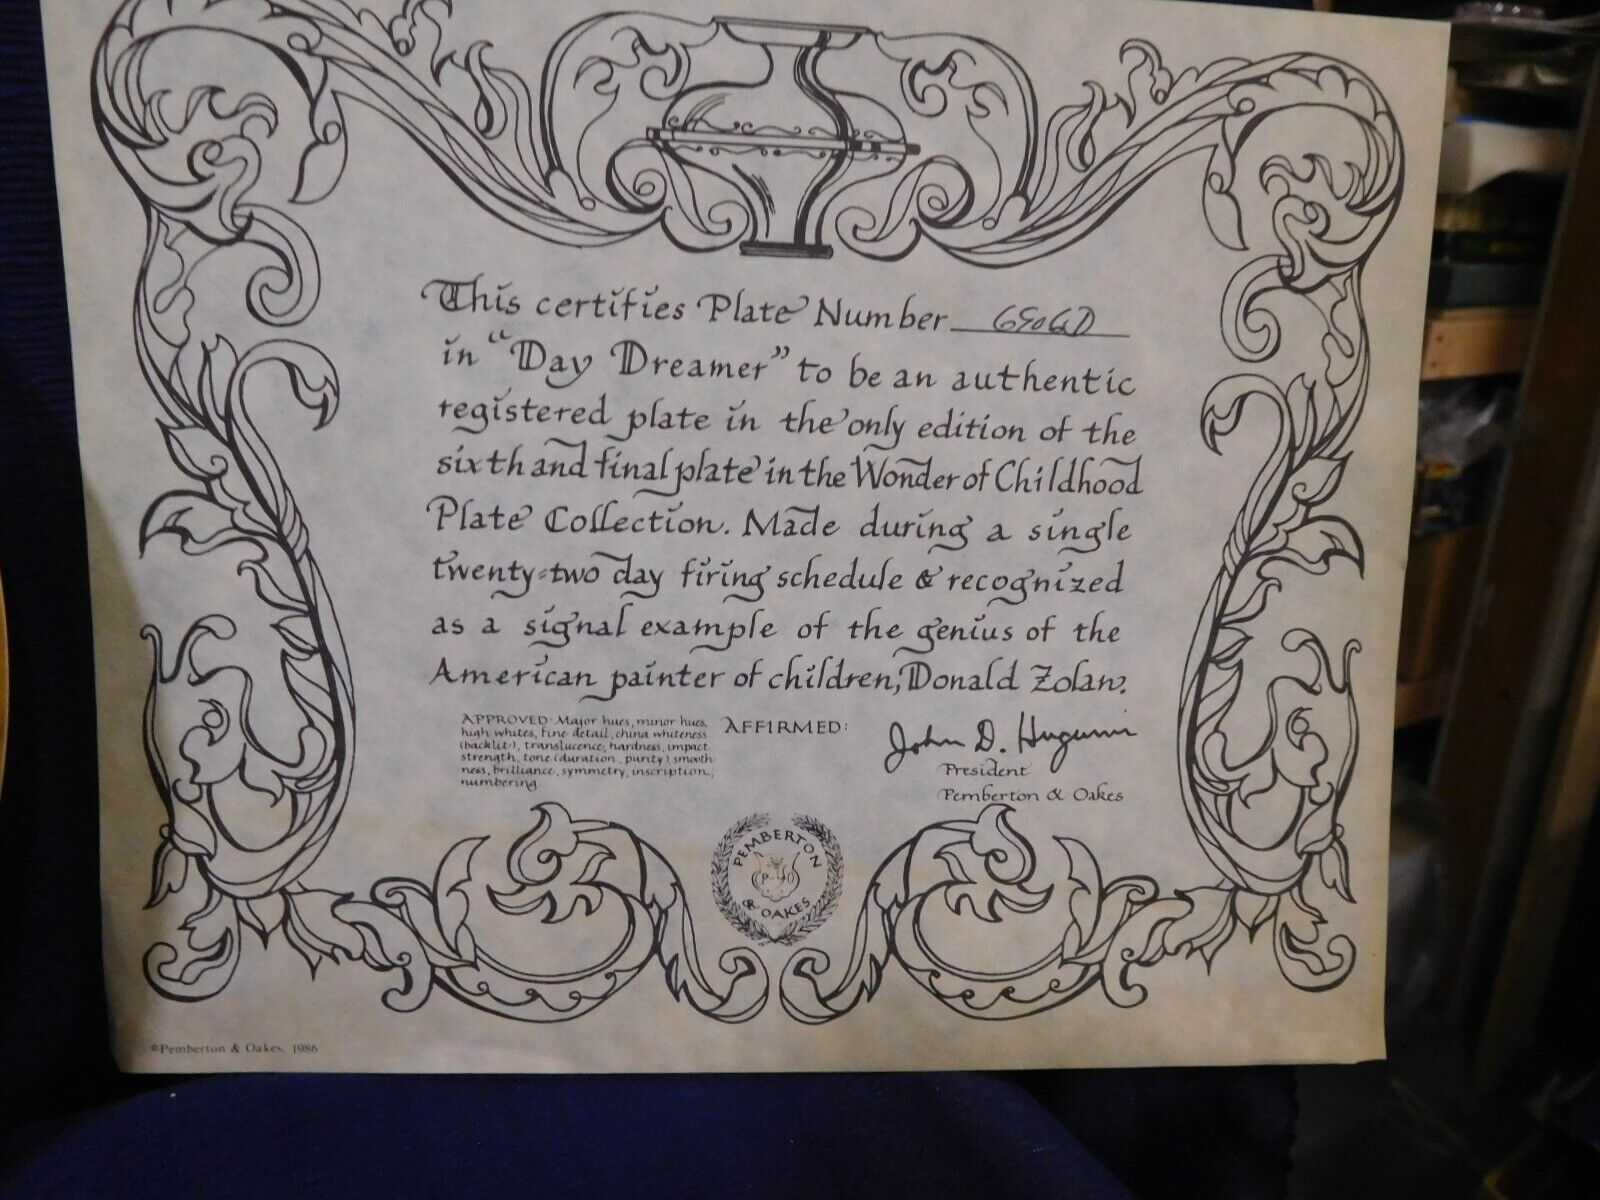 This certifies Plate Number
in "Day Dreamer" to be an authentic
registered plate in the only edition of the
sixth and final plate in the Wonder of Childhood
Plate Collection. Made during a single
twenty-two day firing schedule & recognized
as a signal example of the genius of the
American painter of children, Donald Zolan.
APPROVED: Major hues, minor hues,
high whites, fine detail, china whiteness
(backlit), translucence, hardness, impact
strength, tone (duration, purity) smooth-
ness, brilliance, symmetry, inscription,
numbering
AFFIRMED:
John D. Hugunin
President
Pemberton & Oakes
PEMBERTON
P O
& OAKES
©Pemberton & Oakes, 1986